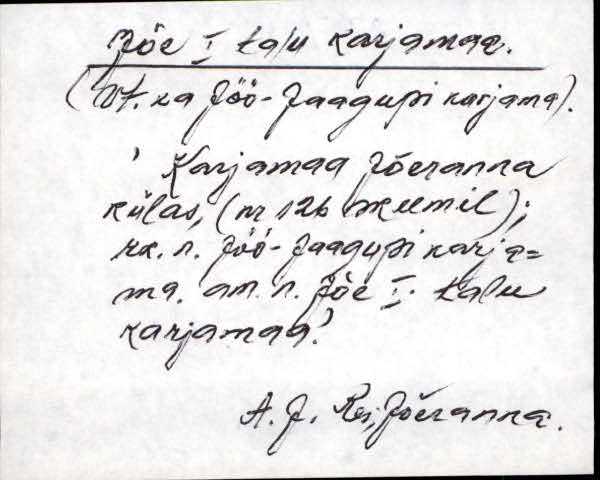 Jõe I talu karjamaa.
(Vt. ka Jöö-Jaagupi karjama).
' Karjamaa Jõeranna
külas, (nr 126 skeemil);
rk. n. Jöö-Jaagupi karja=
ma. am. n. Jõe I. talu
karjamaa.'
A. J. Rei, Jõeranna.